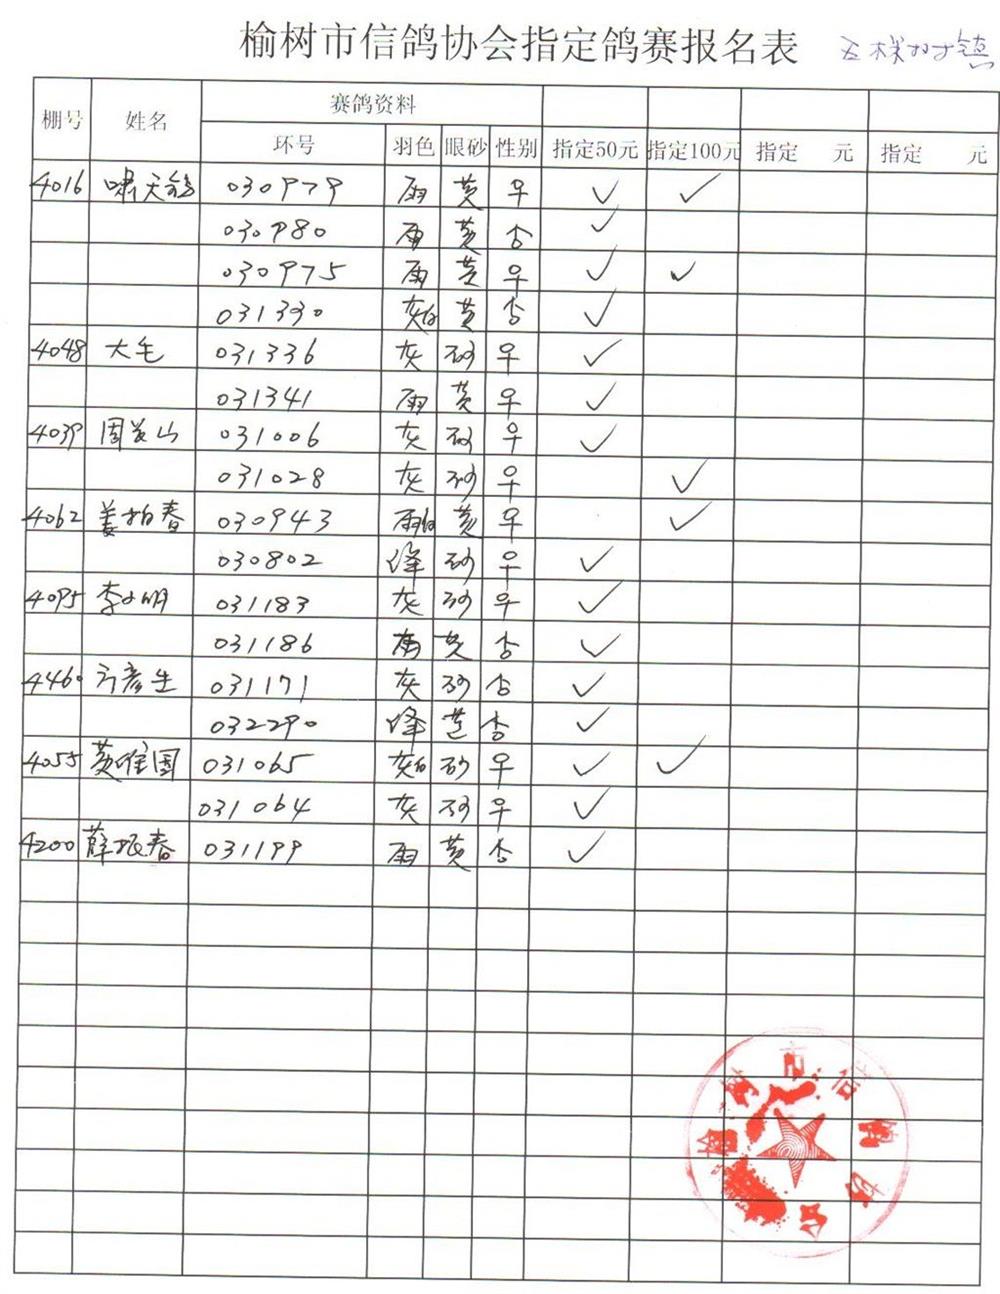 榆树市信鸽协会指定鸽赛报名表 五棵树镇
棚号 姓名 赛鸽资料
环号 羽色 眼砂 性别 指定50元 指定100元 指定 元 指定 元
4016 啸天鸽 030979 雨 黄 ♀ ✓ ✓
030980 雨 黄 ✓
030975 雨 黄 ♀ ✓ ✓
031330 灰白 黄 ✓
4048 大毛 031336 灰 砂 ♀ ✓
031341 雨 黄 ♀ ✓
4039 031006 灰 砂 ♀ ✓
031028 灰 砂 ♀ ✓
4062 姜柏春 030943 雨白 黄 ♀ ✓
030802 绛 砂 ♀ ✓
4095 李小明 031183 灰 砂 ♀ ✓
031186 雨 黄 ✓
4460 彦生 031171 灰 砂 ✓
032290 绛 ✓
4055 黄维国 031065 灰白 砂 ♀ ✓ ✓
031064 灰 砂 ♀ ✓
4200 薛振春 031199 雨 黄 ✓
榆树市信鸽协会